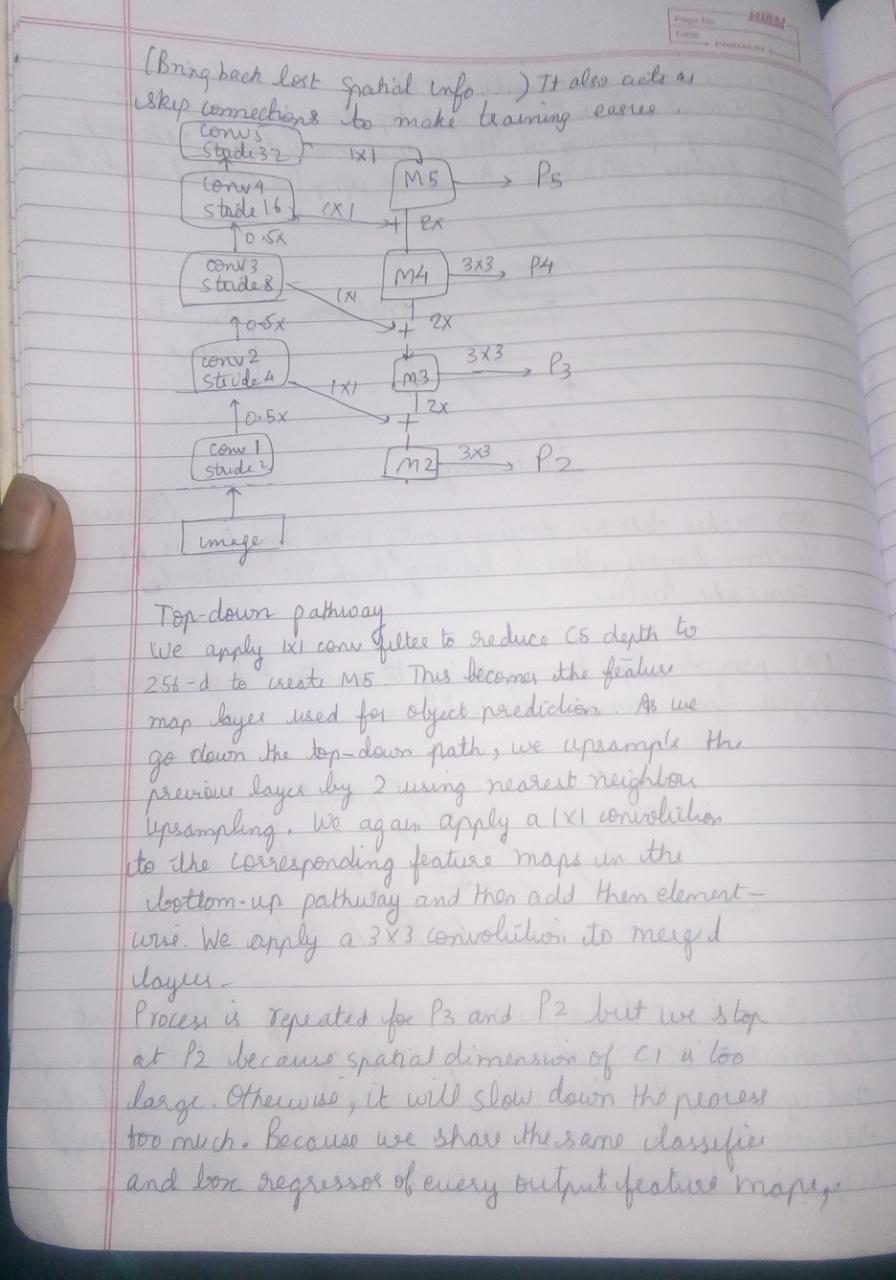 Page No.
MIRAJ
Date:
PREMIUM
(Bring back lost spatial info ...) It also acts as
skip connections to make training easier.
conv5
stride 32
1x1
M5
P5
conv4
stride 16
1x1
+
2x
0.5x
conv3
stride 8
M4
3x3
P4
1x1
0.5x
+
2x
conv2
stride 4
M3
3x3
P3
1x1
2x
0.5x
+
conv 1
stride 2
M2
3x3
P2
image
Top-down pathway
We apply 1x1 conv filter to reduce C5 depth to
256-d to create M5. This becomes the feature
map layer used for object prediction. As we
go down the top-down path, we upsample the
previous layer by 2 using nearest neighbour
upsampling. We again apply a 1x1 convolution
to the corresponding feature maps in the
bottom-up pathway and then add them element-
wise. We apply a 3x3 convolution to merged
layers.
Process is repeated for P3 and P2 but we stop
at P2 because spatial dimension of C1 is too
large. Otherwise, it will slow down the process
too much. Because we share the same classifier
and box regressor of every output feature maps,